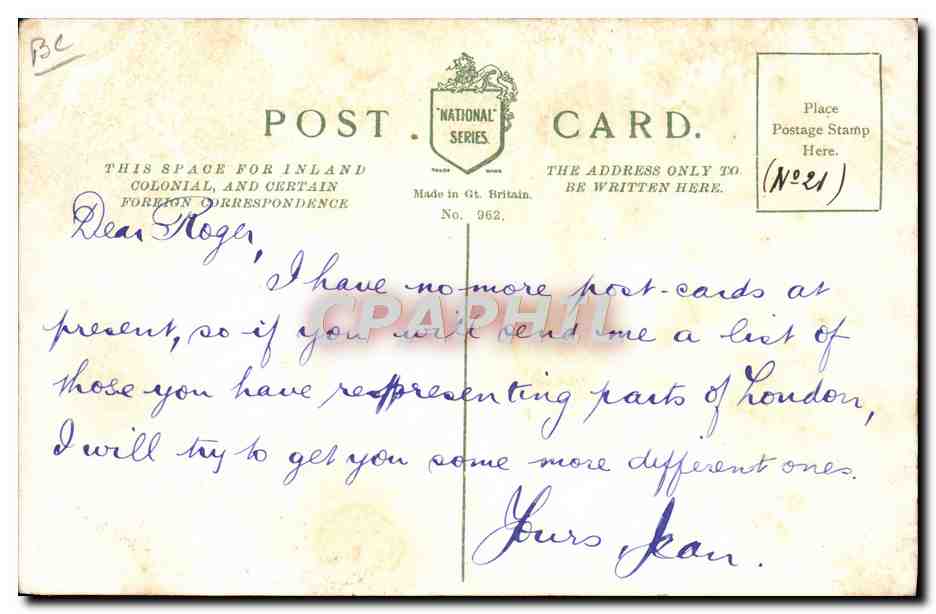 BC
POST CARD.
"NATIONAL"
SERIES.
TRADE MARK
Place
Postage Stamp
Here.
(No 21)
THIS SPACE FOR INLAND
COLONIAL, AND CERTAIN
FOREIGN CORRESPONDENCE
Made in Gt. Britain.
No. 962.
THE ADDRESS ONLY TO
BE WRITTEN HERE.
Dear Roger,
I have no more post-cards at
present, so if you will send me a list of
those you have representing parts of London,
I will try to get you some more different ones.
Yours, Jean.
CPAPHIL